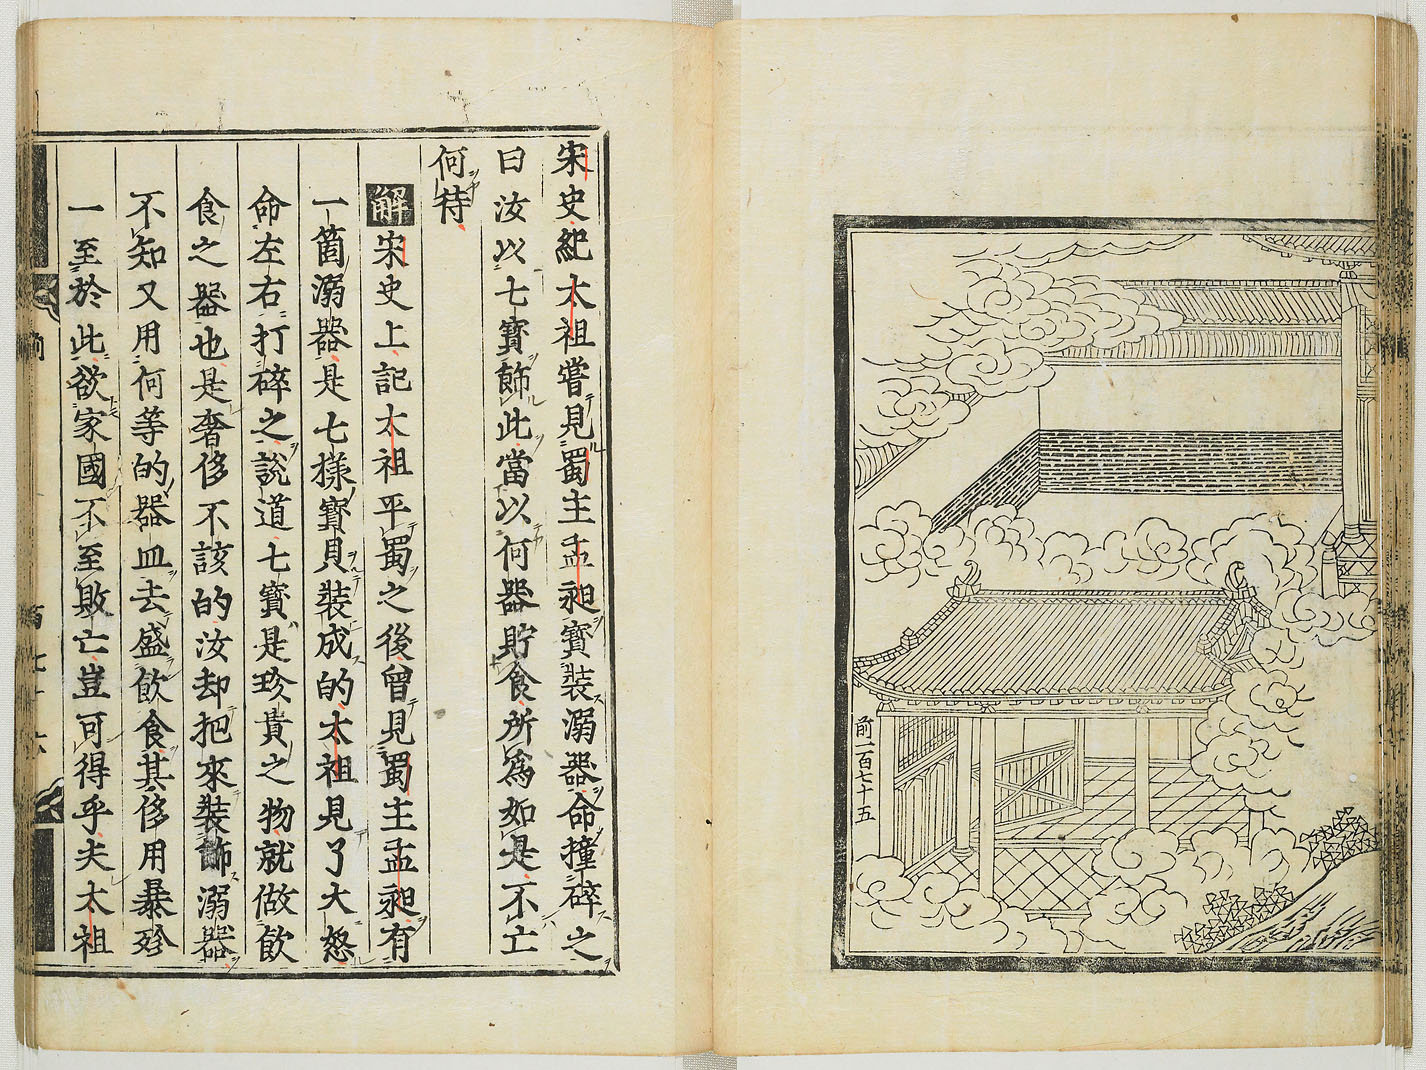 前一百七十五
宋史紀太祖嘗見蜀主孟昶寶装溺器命撞碎之
曰汝以七寶飾此當以何器貯食所為如是不亡
何待
解宋史上記太祖平蜀之後曾見蜀主孟昶有
一箇溺器是七樣寶貝装成的太祖見了大怒
命左右打碎之說道七寳是珍貴之物就做飲
食之器也是奢侈不該的汝却把來装飾溺器
不知又用何等的器皿去盛飲食其侈用暴殄
一至於此欲家國不至敗亡豈可得乎夫太祖